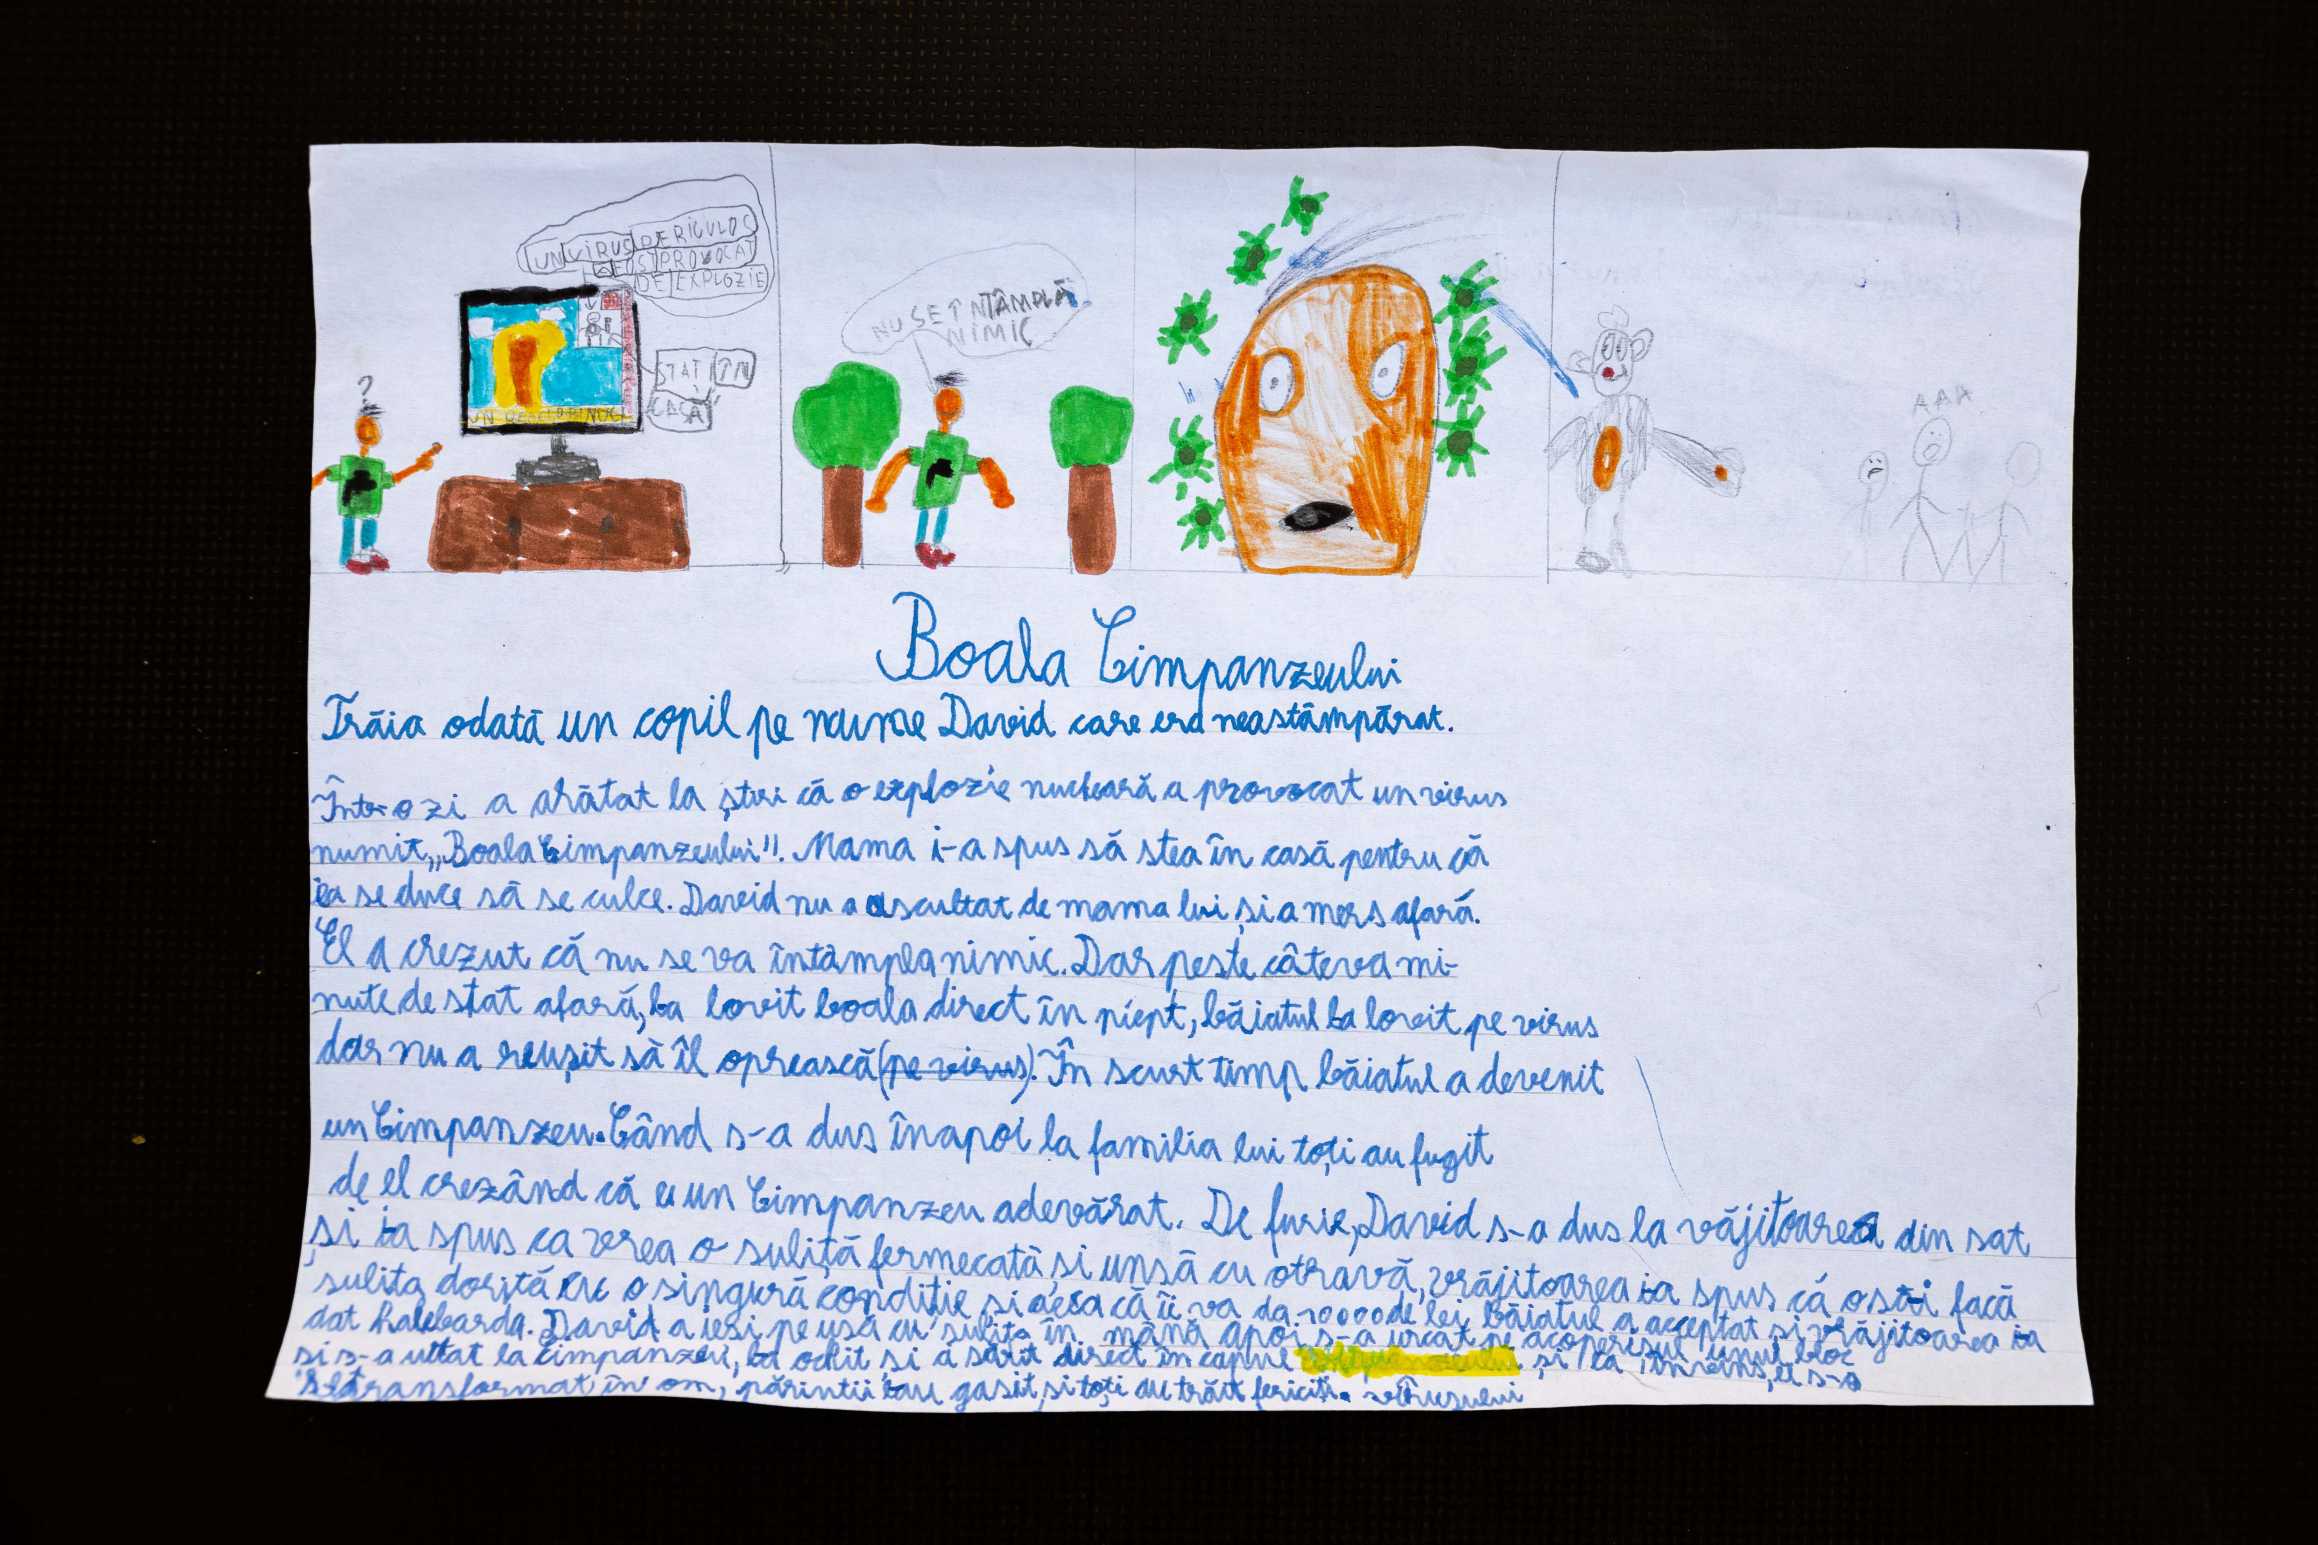 UN VIRUS PERICULOS
A FOST PROVOCAT
DE EXPLOZIE
STAȚI ÎN
CASĂ
?
NU SE ÎNTÂMPLĂ
NIMIC
AAA
Boala Cimpanzeului
Trăia odată un copil pe nume David care era neastâmpărat.
Într-o zi a arătat la știri că o explozie nucleară a provocat un virus
numit „Boala Cimpanzeului". Mama i-a spus să stea în casă pentru că
ea se duce să se culce. David nu a ascultat de mama lui și a mers afară.
El a crezut că nu se va întâmpla nimic. Dar peste câteva mi-
nute de stat afară, la lovit boala direct în piept, băiatul la lovit pe virus
dar nu a reușit să îl oprească (pe virus). În scurt timp băiatul a devenit
un Cimpanzeu. Când s-a dus înapoi la familia lui toți au fugit
de el crezând că e un Cimpanzeu adevărat. De furie, David s-a dus la văjitoarea din sat
și ia spus ca vrea o suliță fermecată și unsă cu otravă, vrăjitoarea ia spus că o să-i facă
sulița dorită cu o singură condiție și aceea că îi va da 10000 de lei băiatul a acceptat și vrăjitoarea ia
dat halebarda. David a ieși pe ușă cu sulița în mână apoi s-a urcat pe acoperișul unui bloc
și s-a uitat la cimpanzeu, la ochit și a sărit direct în capul și la învins, el s-a
transformat în om, părinții lau gasit și toți au trăit fericiți. virusului